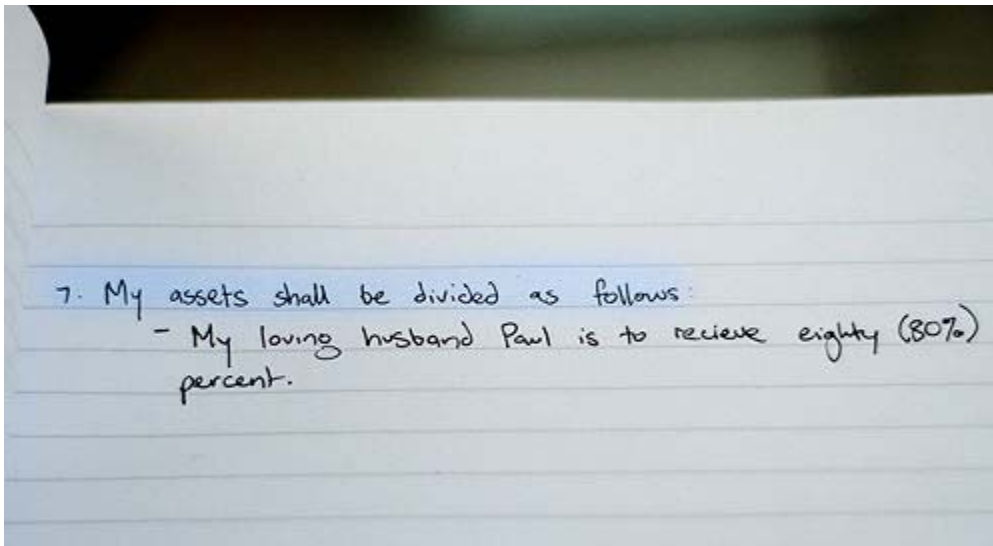 7. My assets shall be divided as follows:
- My loving husband Paul is to recieve eighty (80%)
percent.